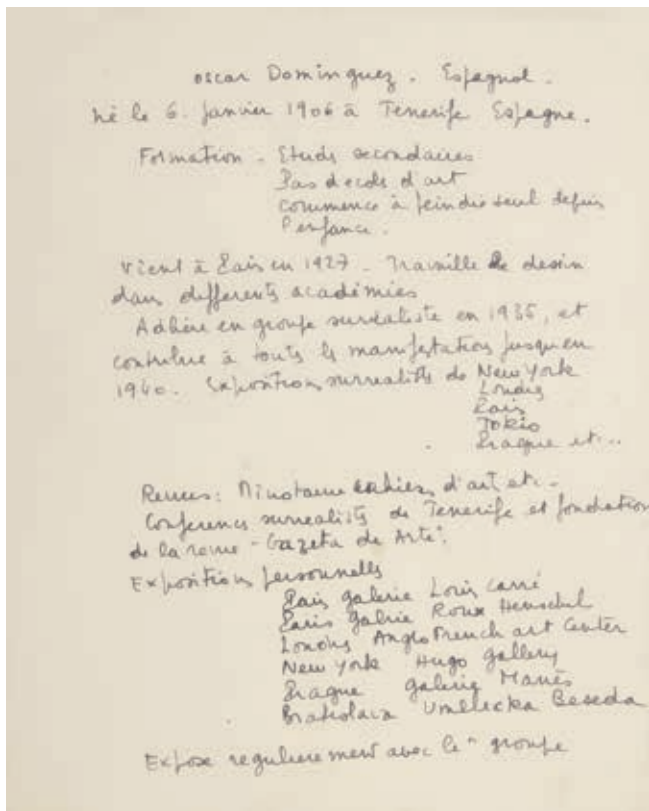 oscar Dominguez. Espagnol.
né le 6. janvier 1906 à Tenerife Espagne.
Formation - Etuds secondaires
Pas d'ecols d'art
commence à peindre seul depuis
l'enfance.
vient à Paris en 1927 - Travaille le dessin
dans differents académies
Adhère en groupe surréaliste en 1935, et
contribue à touts ls manifestation jusqu'en
1940. Expositions surrealists de New York
Londrs
Paris
Tokio
Prague et...
Revues: Minotaure cahiers d'art et-
Conference surrealists de Tenerife et fondation
de la revue "Gazeta de Arte".
Expositions personnelles
Paris galerie Louis Carré
Paris galerie Roux Henschel
Londrs Anglo French art Center
New York Hugo gallery
Prague galerie Manès
Bratislava Umelecka Beseda
Expose regulierement avec le " groupe